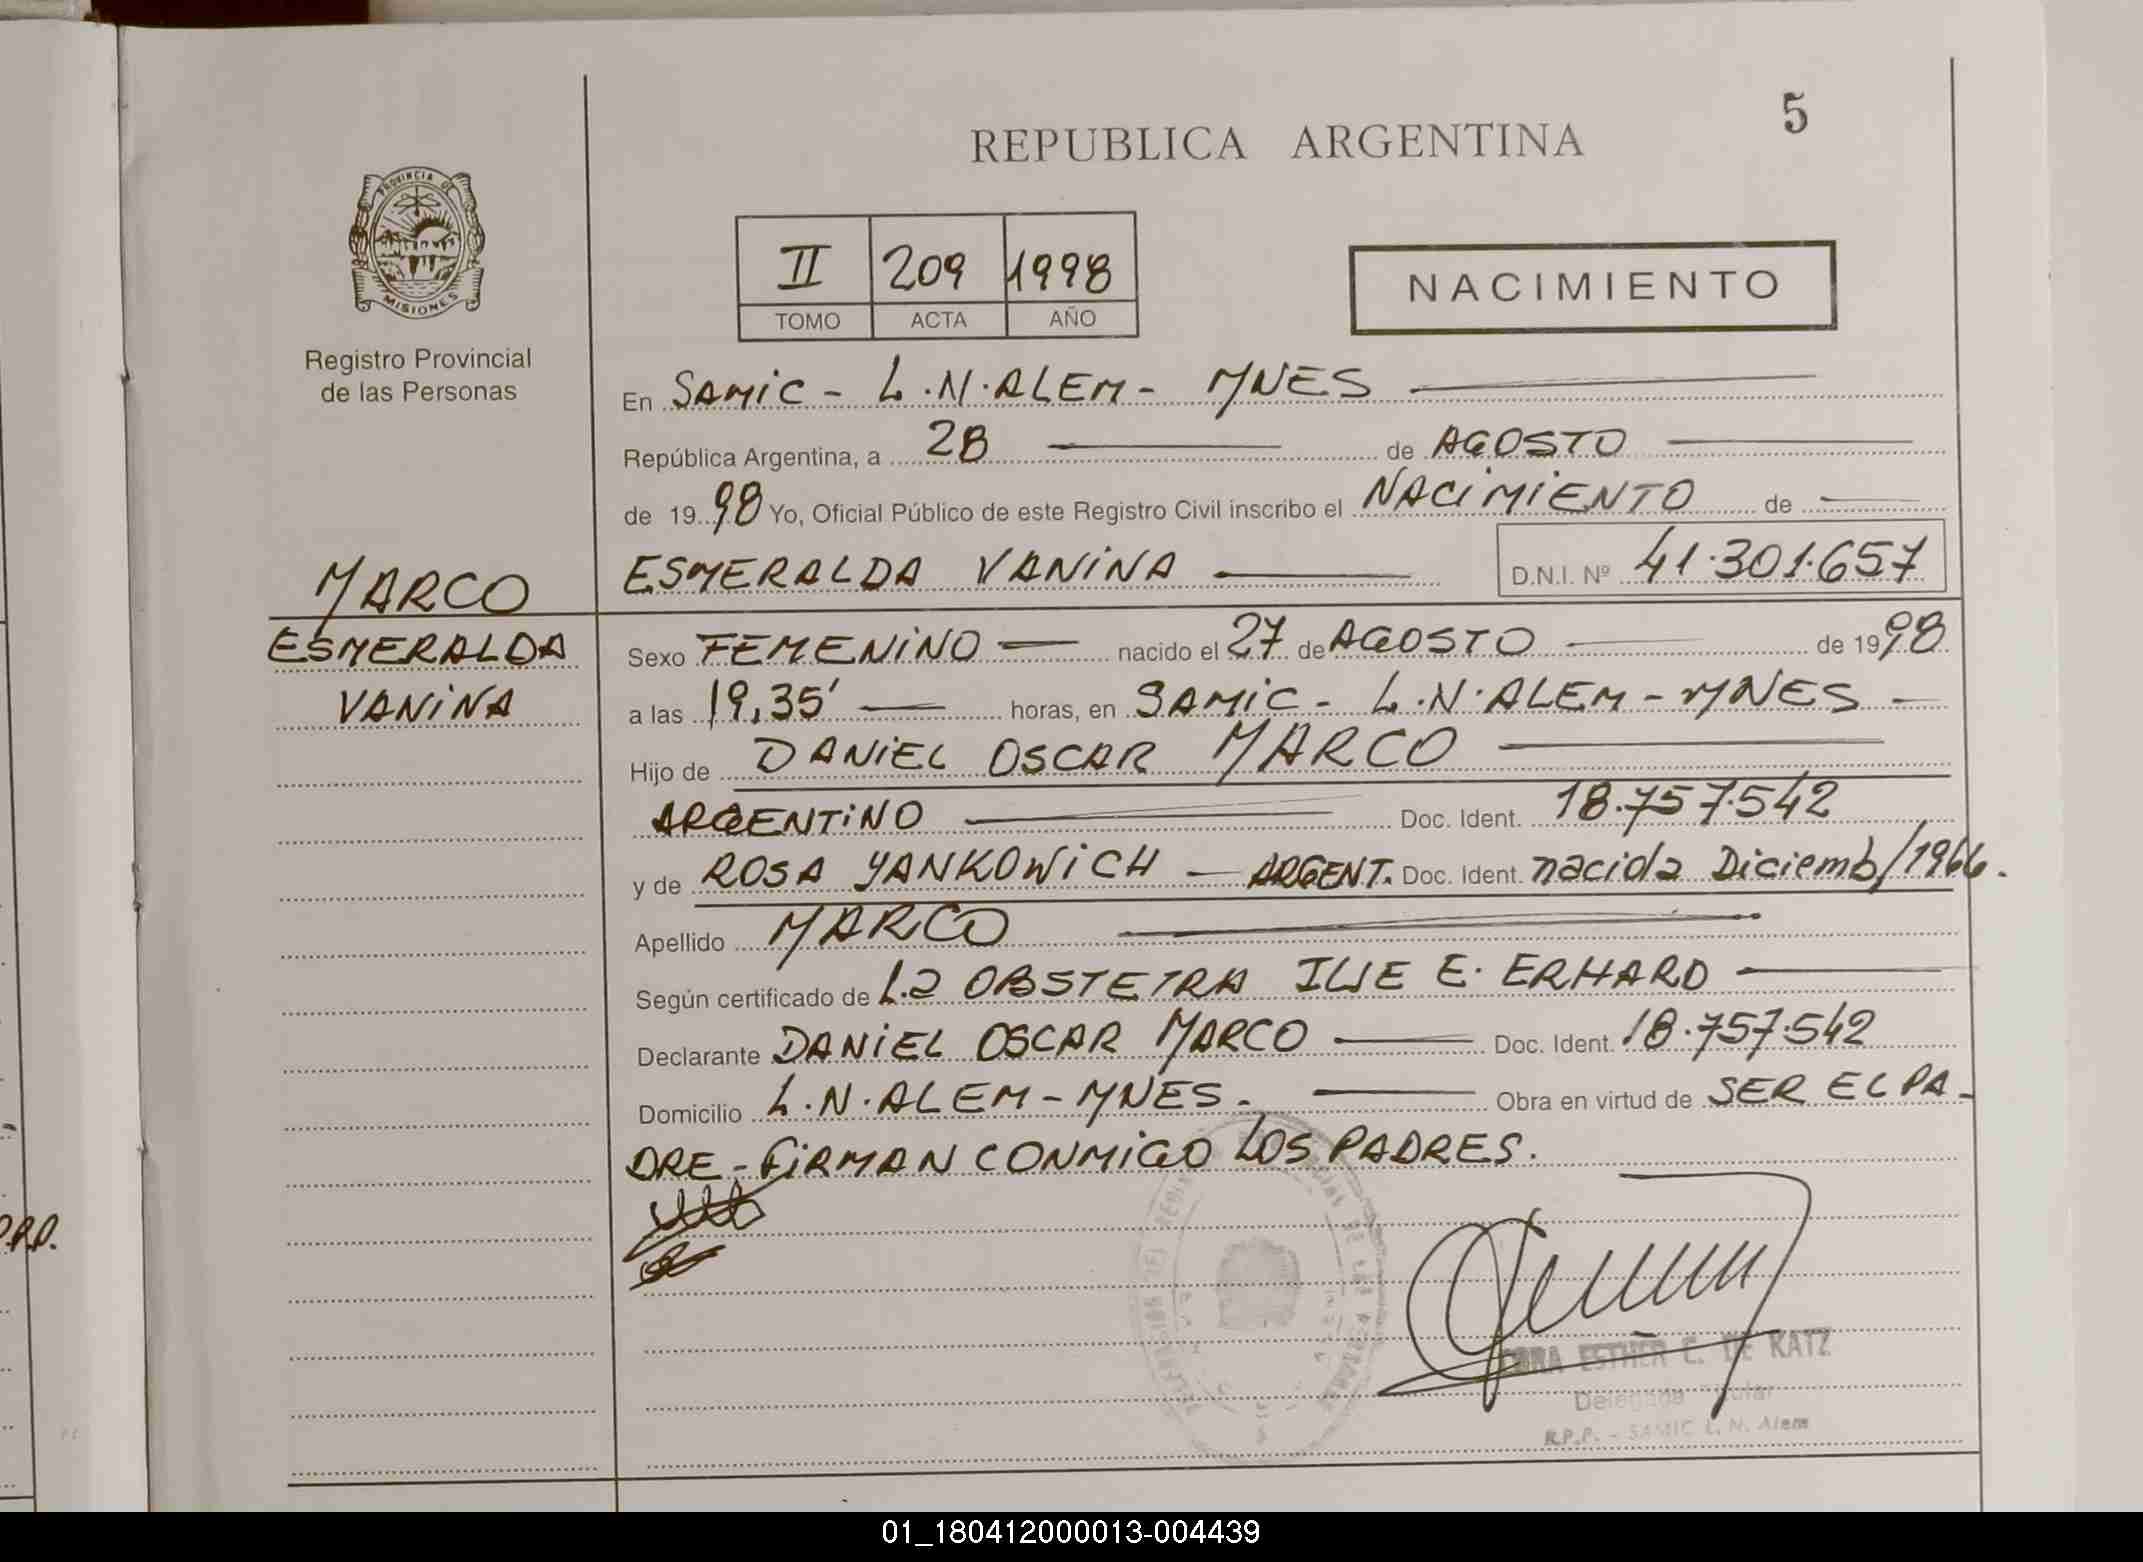 5
REPUBLICA ARGENTINA
PROVINCIA DE
MISIONES
Registro Provincial
de las Personas
II 209 1998
TOMO ACTA AÑO
NACIMIENTO
En SAMIC - L.N.ALEM - MNES
República Argentina, a 28 de AGOSTO
de 1998 Yo, Oficial Público de este Registro Civil inscribo el NACIMIENTO de
ESMERALDA VANINA D.N.I. Nº 41.301.657
MARCO
ESMERALDA
VANINA
Sexo FEMENINO nacido el 27 de AGOSTO de 1998
a las 19,35' horas, en SAMIC - L.N.ALEM - MNES -
Hijo de DANIEL OSCAR MARCO
ARGENTINO Doc. Ident. 18.757.542
y de ROSA YANKOWICH - ARGENT. Doc. Ident. nacida Diciemb/1966.
Apellido MARCO
Según certificado de La OBSTETRA ILSE E. ERHARD
Declarante DANIEL OSCAR MARCO Doc. Ident. 18.757.542
Domicilio L.N.ALEM - MNES. Obra en virtud de SER EL PA-
DRE - FIRMAN CONMIGO LOS PADRES.
ESTHER C. DE KATZ
Delegada Titular
R.P.P. - SAMIC L. N. Alem
01_180412000013-004439